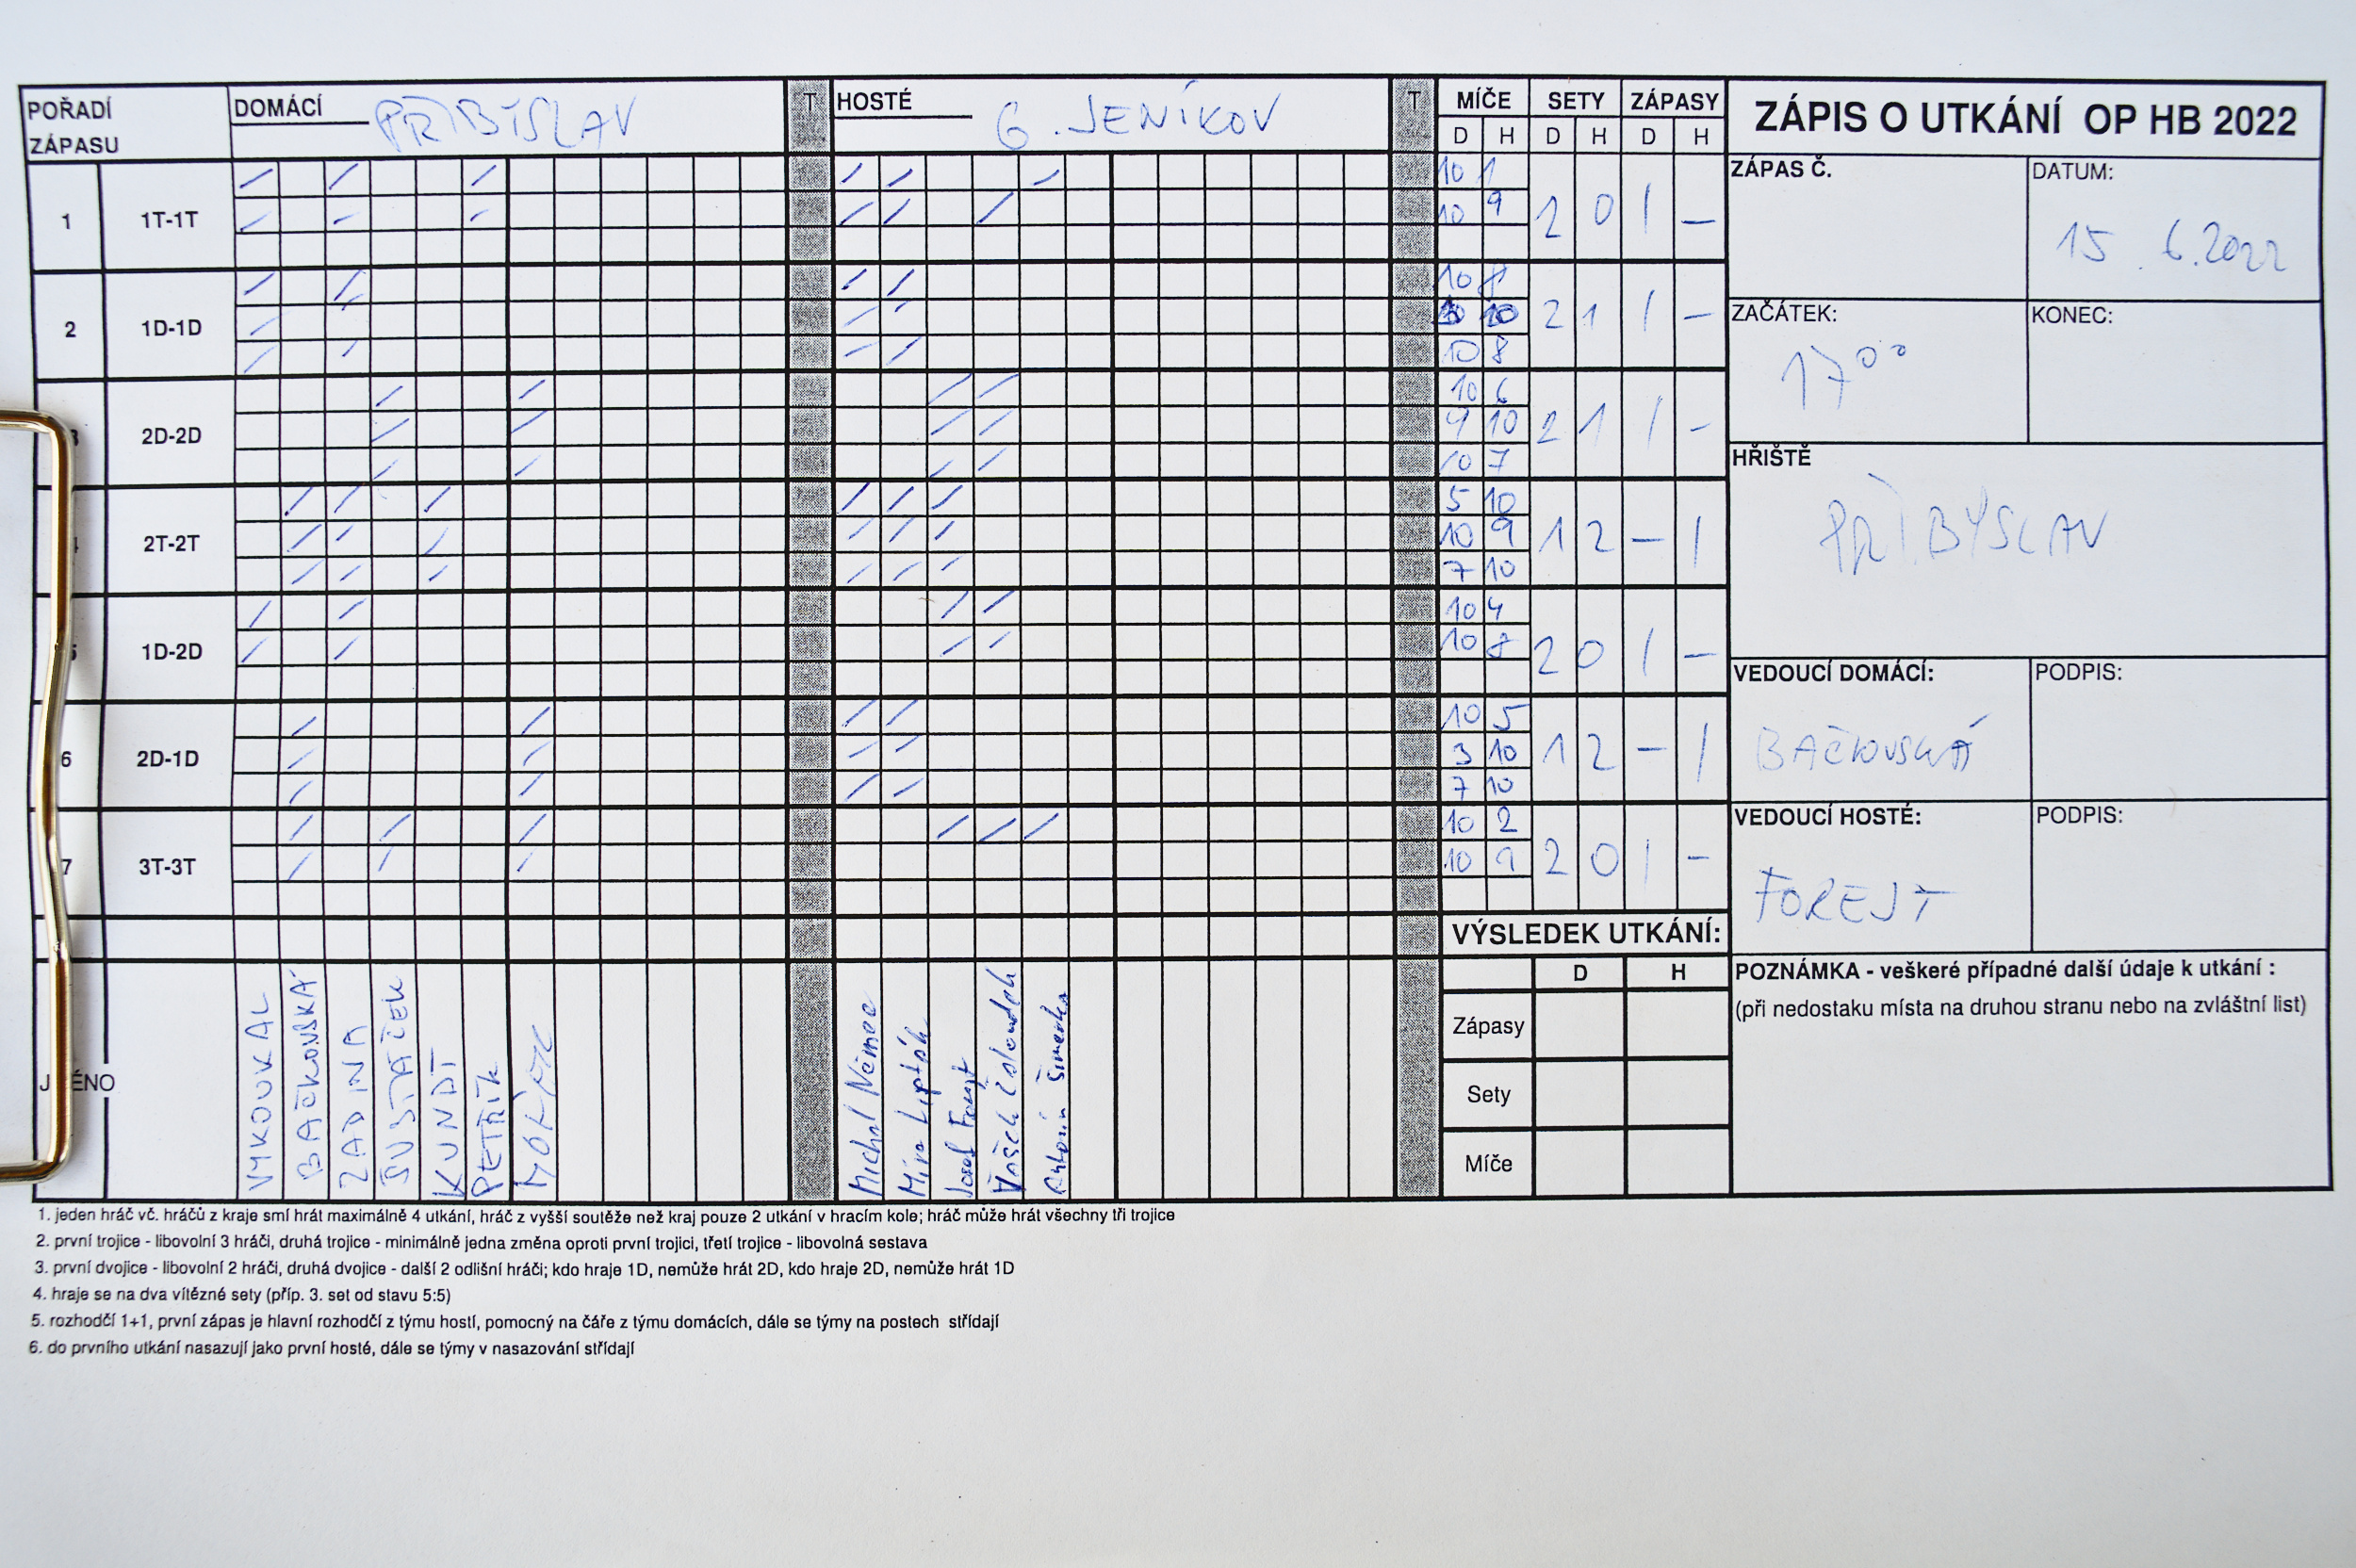 POŘADÍ ZÁPASU DOMÁCÍ PŘIBYSLAV T HOSTÉ G. JENÍKOV T MÍČE SETY ZÁPASY
D H D H D H
ZÁPIS O UTKÁNÍ OP HB 2022
1 1T-1T 10 1 2 0 1 –
10 9
2 1D-1D 2 1 1 –
10 8
2D-2D 10 6 2 1 1 –
4 10
10 7
2T-2T 5 10 1 2 – 1
10 9
7 10
1D-2D 10 4 2 0 1 –
10 8
6 2D-1D 10 5 1 2 – 1
3 10
7 10
7 3T-3T 10 2 2 0 1 –
10 9
ZÁPAS Č.
DATUM:
15. 6. 2022
ZAČÁTEK:
17⁰⁰
KONEC:
HŘIŠTĚ
PŘIBYSLAV
VEDOUCÍ DOMÁCÍ:
BAČKOVSKÁ
PODPIS:
VEDOUCÍ HOSTÉ:
FOREJT
PODPIS:
VÝSLEDEK UTKÁNÍ:
D H
Zápasy
Sety
Míče
POZNÁMKA - veškeré případné další údaje k utkání :
(při nedostaku místa na druhou stranu nebo na zvláštní list)
VMKOUKAL
BAČKOVSKÁ
ZADINA
ŠUSTÁČEK
KUNDT
PETŘÍK
Michal Němec
Mira Lipták
Josef Forejt
Antonín
1. jeden hráč vč. hráčů z kraje smí hrát maximálně 4 utkání, hráč z vyšší soutěže než kraj pouze 2 utkání v hracím kole; hráč může hrát všechny tři trojice
2. první trojice - libovolní 3 hráči, druhá trojice - minimálně jedna změna oproti první trojici, třetí trojice - libovolná sestava
3. první dvojice - libovolní 2 hráči, druhá dvojice - další 2 odlišní hráči; kdo hraje 1D, nemůže hrát 2D, kdo hraje 2D, nemůže hrát 1D
4. hraje se na dva vítězné sety (příp. 3. set od stavu 5:5)
5. rozhodčí 1+1, první zápas je hlavní rozhodčí z týmu hostí, pomocný na čáře z týmu domácích, dále se týmy na postech střídají
6. do prvního utkání nasazují jako první hosté, dále se týmy v nasazování střídají